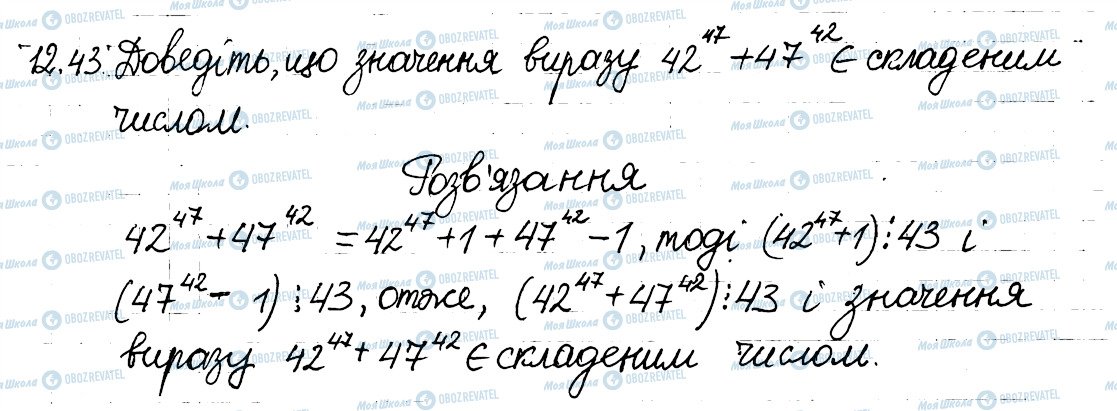 12.43. Доведіть, що значення виразу 42^47 + 47^42 є складеним
числом.
Розв'язання
42^47 + 47^42 = 42^47 + 1 + 47^42 - 1, тоді (42^47 + 1) ⋮ 43 і
(47^42 - 1) ⋮ 43, отже, (42^47 + 47^42) ⋮ 43 і значення
виразу 42^47 + 47^42 є складеним числом.
Моя Школа OBOZREVATEL